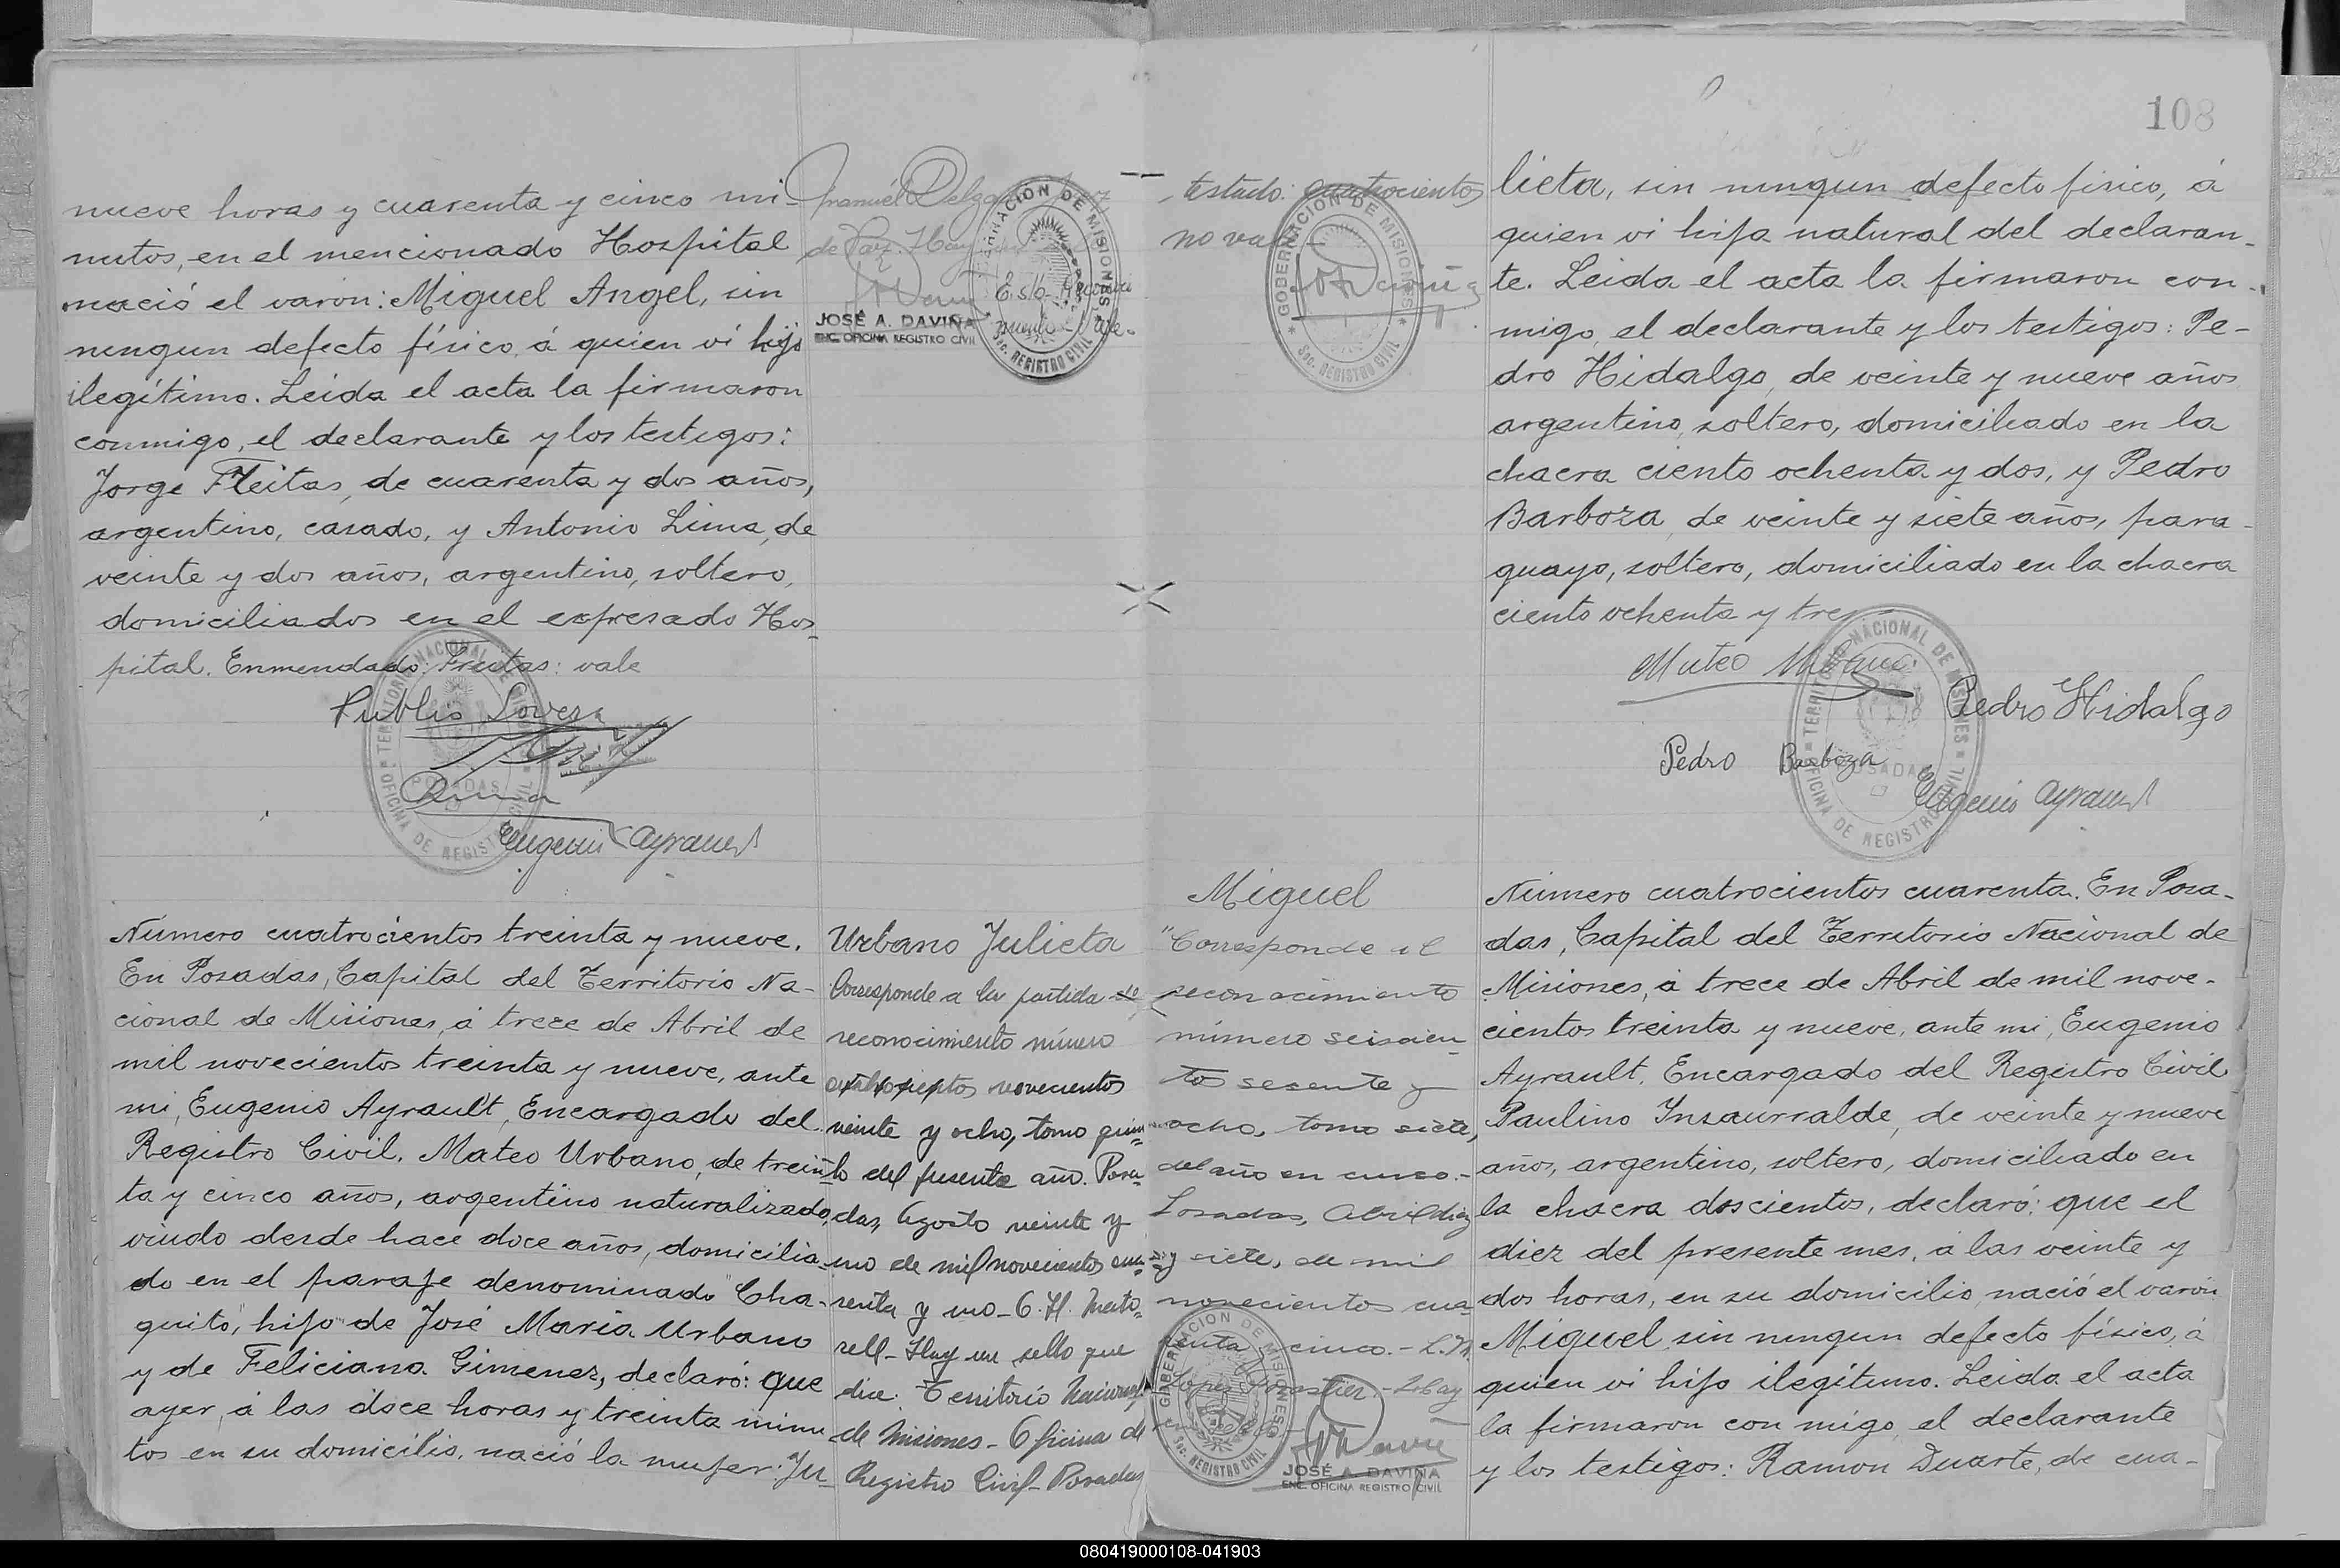 nueve horas y cuarenta y cinco mi-
nutos, en el mencionado Hospital
nació el varón: Miguel Angel, sin
ningun defecto físico, á quien ví hijo
ilegítimo. Leida el acta la firmaron
conmigo, el declarante y los testigos:
Jorge Fleitas, de cuarenta y dos años,
argentino, casado, y Antonio Lima, de
veinte y dos años, argentino, soltero,
domiciliados en el expresado Hos-
pital. Enmendado: Freitas: vale
Publio
Eugenio Ayrault
Número cuatrocientos treinta y nueve.
En Posadas, Capital del Territorio Na-
cional de Misiones, á trece de Abril de
mil novecientos treinta y nueve, ante
mi, Eugenio Ayrault, Encargado del
Registro Civil. Mateo Urbano, de trein-
ta y cinco años, argentino naturalizado,
viudo desde hace doce años, domicilia-
do en el paraje denominado "Cha-
quito", hijo de José María Urbano
y de Feliciana Gimenez, declaró: que
ayer, á las doce horas y treinta minu-
tos en su domicilio, nació la mujer: Ju-
Manuél
de Paz. Hay
JOSÉ A. DAVIÑA
ENC. OFICINA REGISTRO CIVIL
GOBERNACIÓN DE MISIONES
Sec. REGISTRO CIVIL
Urbano Julieta
Corresponde a la partida de
reconocimiento número
novecientos
veinte y ocho, tomo quin-
to del presente año. Posa-
das, Agosto veinte y
uno de mil novecientos cua-
renta y uno- C. H. Marto-
rell- Hay un sello que
dice: Territorio Nacional
de Misiones- Oficina de
Registro Civil- Posadas
- testado: cuatrocientos
no vale
GOBERNACIÓN DE MISIONES
Sec. REGISTRO CIVIL
Miguel
"Corresponde al
reconocimiento
número seiscien-
tos sesenta y
ocho, tomo siete,
del año en curso.-
Posadas, Abril diez
y siete, de mil
novecientos cua-
renta y cinco.-
Lopez - Hay
GOBERNACIÓN DE MISIONES
Sec. REGISTRO CIVIL
JOSÉ A. DAVIÑA
ENC. OFICINA REGISTRO CIVIL
108
lieta, sin ningun defecto físico, á
quien ví hija natural del declaran-
te. Leida el acta la firmaron con-
migo, el declarante y los testigos: Pe-
dro Hidalgo, de veinte y nueve años
argentino, soltero, domiciliado en la
chacra ciento ochenta y dos, y Pedro
Barboza, de veinte y siete años, para-
guayo, soltero, domiciliado en la chacra
ciento ochenta y tres
Mateo
Pedro Hidalgo
Pedro Barboza
Eugenio Ayrault
TERRITORIO NACIONAL DE MISIONES
OFICINA DE REGISTRO CIVIL
POSADAS
Número cuatrocientos cuarenta. En Posa-
das, Capital del Territorio Nacional de
Misiones, á trece de Abril de mil nove-
cientos treinta y nueve, ante mi, Eugenio
Ayrault, Encargado del Registro Civil
Paulino Insaurralde, de veinte y nueve
años, argentino, soltero, domiciliado en
la chacra doscientos, declaró: que el
diez del presente mes, á las veinte y
dos horas, en su domicilio, nació el varón
Miguel, sin ningun defecto físico, á
quien ví hijo ilegítimo. Leida el acta
la firmaron con migo, el declarante
y los testigos: Ramon Duarte, de cua-
080419000108-041903